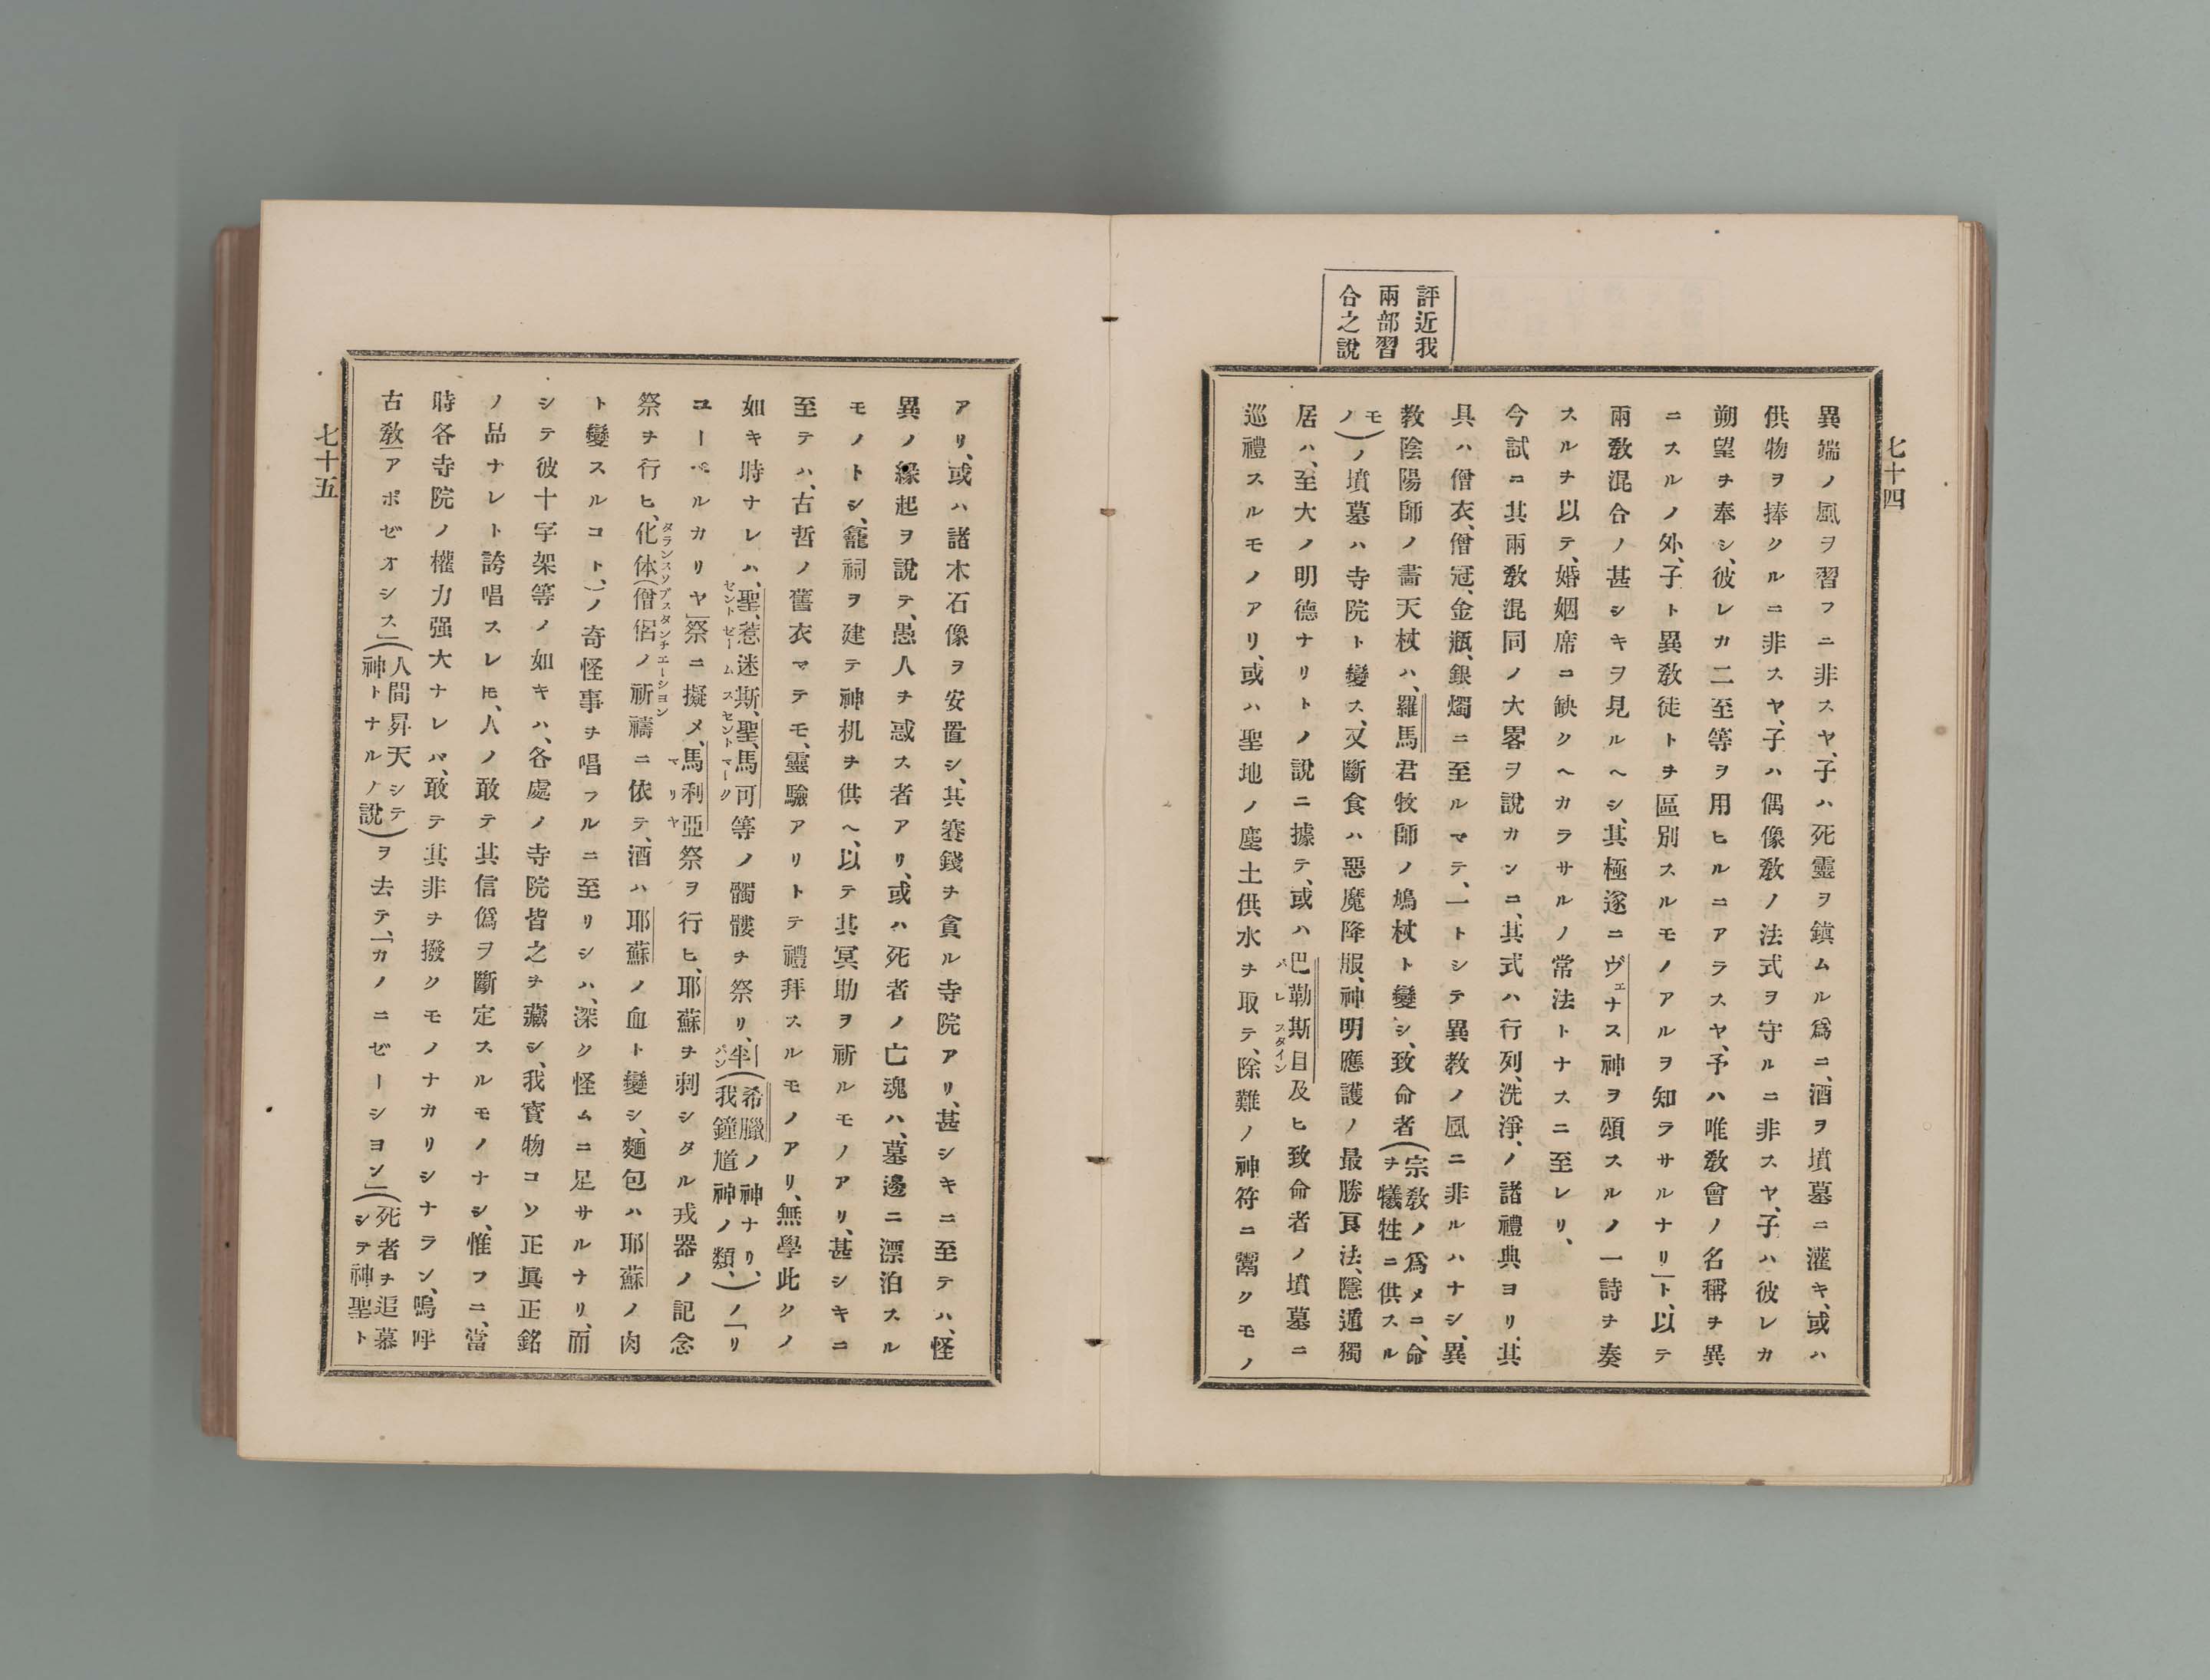 七十四
評近我
兩部習
合之說
異端ノ風ヲ習フニ非スヤ、子ハ死靈ヲ鎭ムル爲ニ、酒ヲ墳墓ニ灌キ、或ハ
供物ヲ捧クルニ非スヤ、子ハ偶像敎ノ法式ヲ守ルニ非スヤ、子ハ彼レカ
朔望ヲ奉シ、彼レカ二至等ヲ用ヒルニアラスヤ、予ハ唯敎會ノ名稱ヲ異
ニスルノ外、子ト異敎徒トヲ區別スルモノアルヲ知ラサルナリ」ト、以テ
兩敎混合ノ甚シキヲ見ルヘシ、其極遂ニヴェナス神ヲ頌スルノ一詩ヲ奏
スルヲ以テ、婚姻席ニ缺クヘカラサルノ常法トナスニ至レリ、
今試ニ其兩敎混同ノ大畧ヲ說カンニ、其式ハ行列、洗淨、ノ諸禮典ヨリ、其
具ハ僧衣、僧冠、金瓶、銀燭ニ至ルマテ、一トシテ異敎ノ風ニ非ルハナシ、異
敎陰陽師ノ晝天杖ハ、羅馬君牧師ノ鳩杖ト變シ、致命者(宗敎ノ爲メニ、命ヲ犧牲ニ供スル
モノ)ノ墳墓ハ寺院ト變ス、又斷食ハ惡魔降服、神明應護ノ最勝良法、隱遁獨
居ハ、至大ノ明德ナリトノ說ニ據テ、或ハ巴勒斯旦及ヒ致命者ノ墳墓ニ
パレスタイン
巡禮スルモノアリ、或ハ聖地ノ塵土供水ヲ取テ、除難ノ神符ニ鬻クモノ
アリ、或ハ諸木石像ヲ安置シ、其賽錢ヲ貪ル寺院アリ、甚シキニ至テハ、怪
異ノ緣起ヲ說テ、愚人ヲ惑ス者アリ、或ハ死者ノ亡魂ハ、墓邊ニ漂泊スル
モノトシ、龕祠ヲ建テ神机ヲ供ヘ、以テ其冥助ヲ祈ルモノアリ、甚シキニ
至テハ、古哲ノ舊衣マテモ、靈驗アリトテ禮拜スルモノアリ、無學此クノ
如キ時ナレハ、聖、惹迷斯、聖、馬可等ノ髑髏ヲ祭リ、牉(希臘ノ神ナリ、我鐘馗神ノ類、)ノ「リ
セントゼームス セントマーク パン
ユーベルカリヤ」祭ニ擬メ、馬利亞祭ヲ行ヒ、耶蘇ヲ刺シタル戎器ノ記念
マリヤ
祭ヲ行ヒ、化体(僧侶ノ祈禱ニ依テ、酒ハ耶蘇ノ血ト變シ、麵包ハ耶蘇ノ肉
タランスソブスタンチエーション
ト變スルコト、)ノ奇怪事ヲ唱フルニ至リシハ、深ク怪ムニ足サルナリ、而
シテ彼十字架等ノ如キハ、各處ノ寺院皆之ヲ藏シ、我寶物コソ正眞正銘
ノ品ナレト誇唱スレ𪜈、人ノ敢テ其信僞ヲ斷定スルモノナシ、惟フニ、當
時各寺院ノ權力强大ナレバ、敢テ其非ヲ撥クモノナカリシナラン、嗚呼
古敎「アポゼオシス」(人間昇天シテ神トナルノ說)ヲ去テ、「カノニゼーション」(死者ヲ追慕シテ神聖ト
七十五